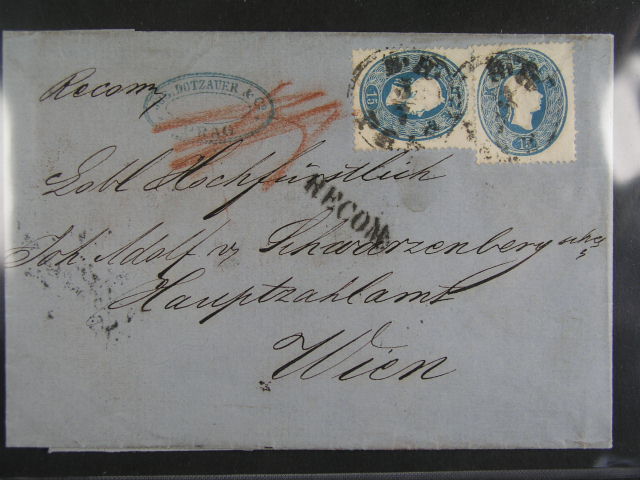 Recom
DOTZAUER & C
PRAG
15
15
RECOM.
Löbl Hochfürstlich
Joh. Adolf v. Schwarzenberg
Hauptzahlamt
Wien